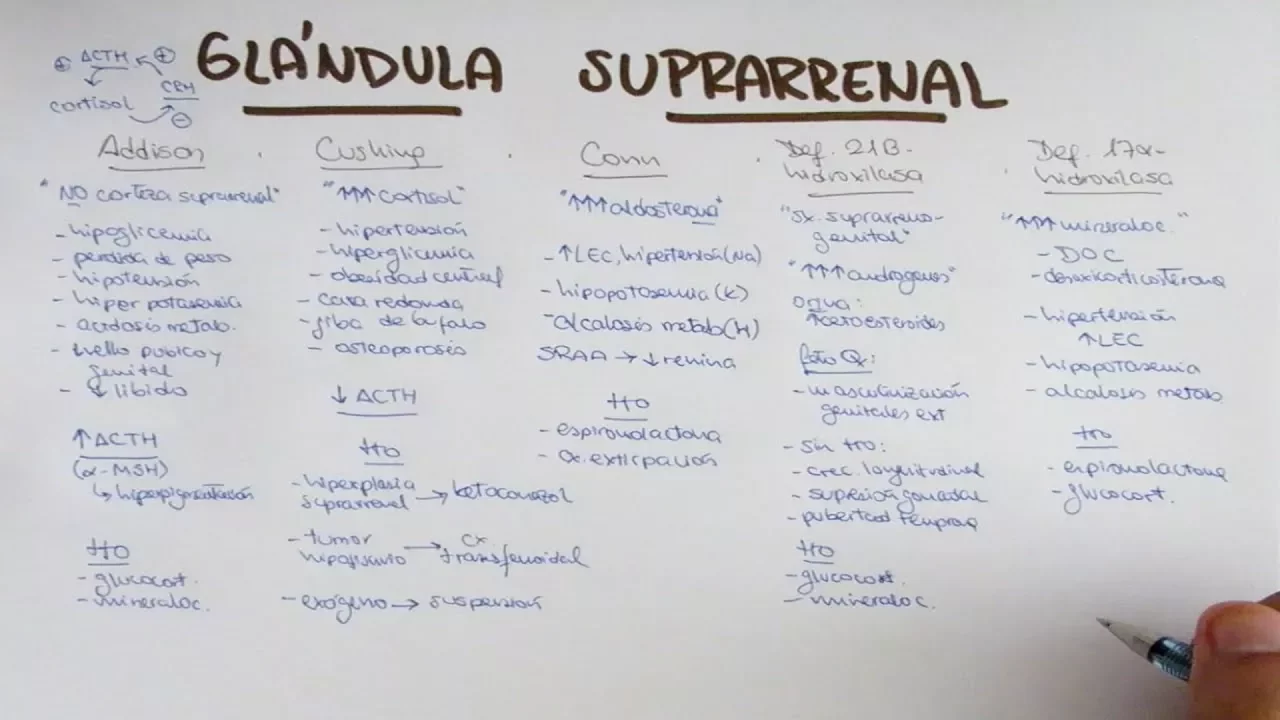 GLÁNDULA SUPRARRENAL
⊕ ACTH ⊕
CRH
cortisol
⊖
Addison
"NO corteza suprarrenal"
- hipoglicemia
- perdida de peso
- hipotensión
- hiperpotasemia
- acidosis metab.
- vello pubico y
genital
- ↓ libido
↑ACTH
(α-MSH)
↳ hiperpigmentación
tto
- glucocort.
- mineraloc.
Cushing
"↑↑↑ cortisol"
- hipertensión
- hiperglicemia
- obesidad central
- cara redonda
- jiba de bufalo
- osteoporosis
↓ ACTH
tto
- hiperplasia
suprarrenal → ketoconazol
- tumor
hipofisiario → cx
transfenoidal
- exógeno → suspensión
Conn
"↑↑↑ aldosterona"
- ↑LEC, hipertensión (Na)
- hipopotasemia (K)
- alcalosis metab (H)
SRAA → ↓ renina
tto
- espironolactona
- cx. extirpación
Def. 21B-
hidroxilasa
"sx. suprarreno-
genital"
"↑↑↑ androgenos"
orina:
↑cetoesteroides
- masculinización
genitales ext
- sin tto:
- crec. longitudinal
- supresión gonadal
- pubertad temprana
tto
- glucocort.
- mineraloc.
Def. 17α-
hidroxilasa
"↑↑↑ mineraloc."
- DOC
- desoxicorticosterona
- hipertensión
↑LEC
- hipopotasemia
- alcalosis metab
tto
- espironolactona
- glucocort.